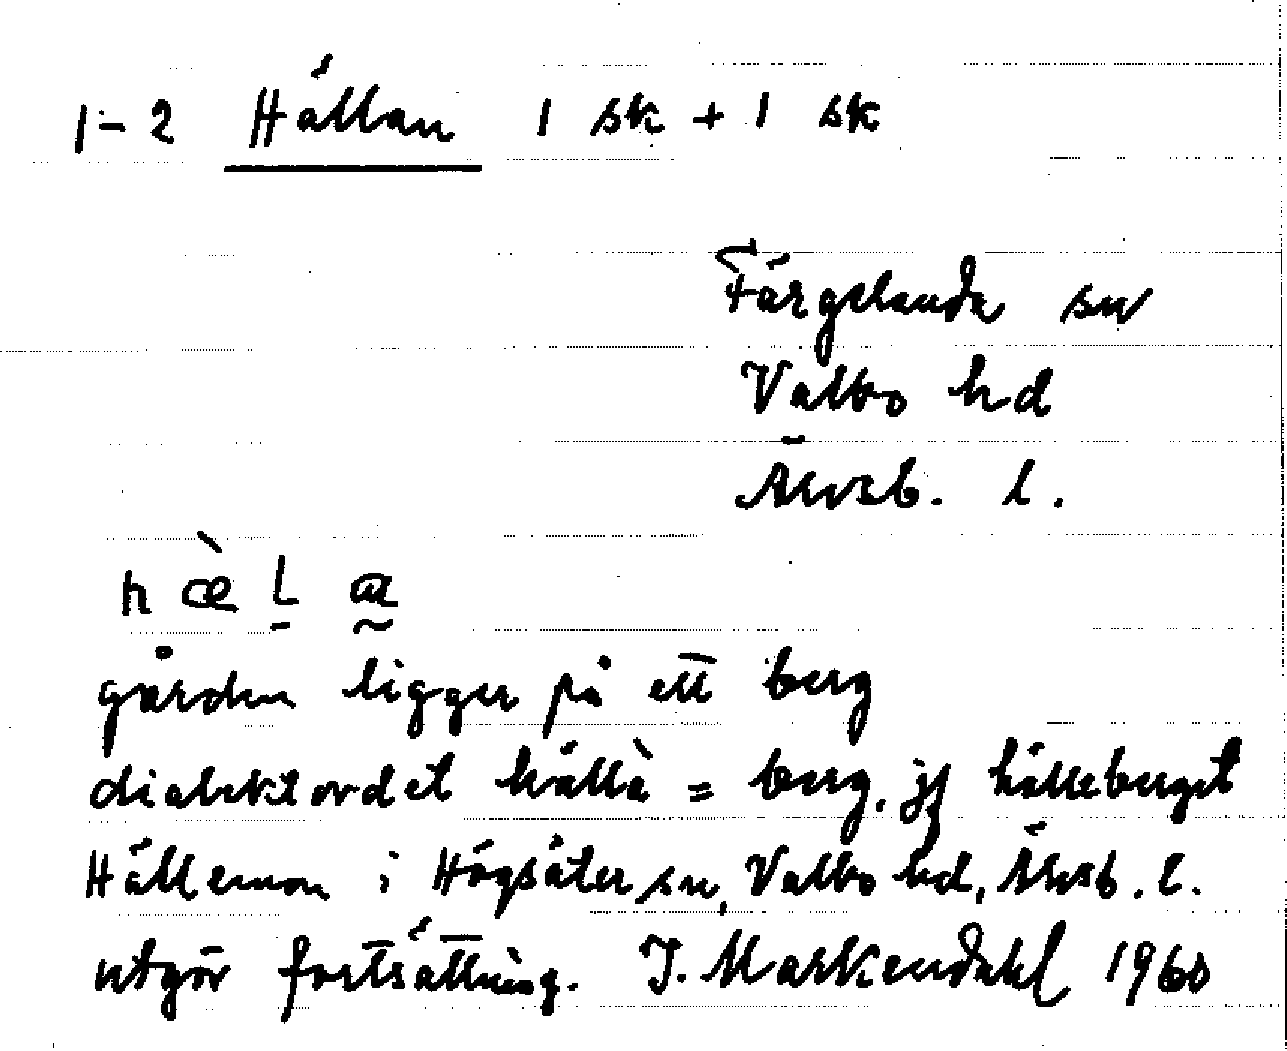 1-2 Hällan 1 sk + 1 sk
Färgelanda sn
Valbo hd
Älvsb. l.
hæ̀l̠a̰
gården ligger på ett berg
dialektordet hällà = berg. jf hälleberget
Hällemon i Högsäter sn, Valbo hd, Älvsb. l.
utgör fortsättning. J. Markendahl 1960